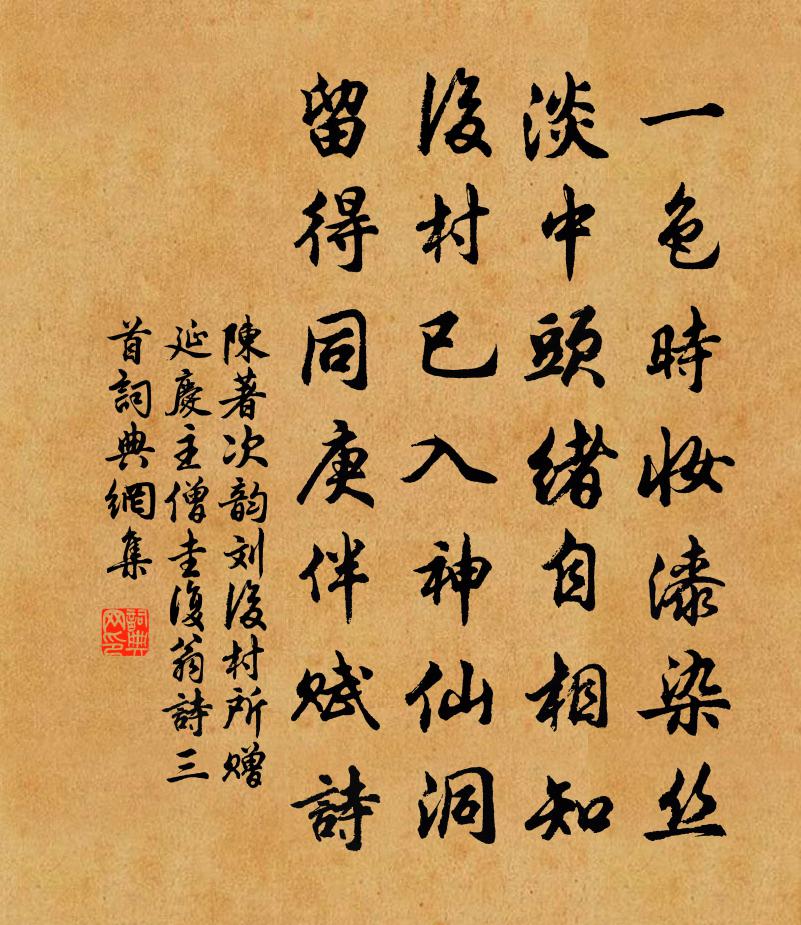 一色時妝漆染丝
淡中頭緒自相知
後村已入神仙洞
留得同庚伴赋詩
陳著次韵刘後村所赠
延慶主僧圭復翁詩三
首詞典網集
詞典网印